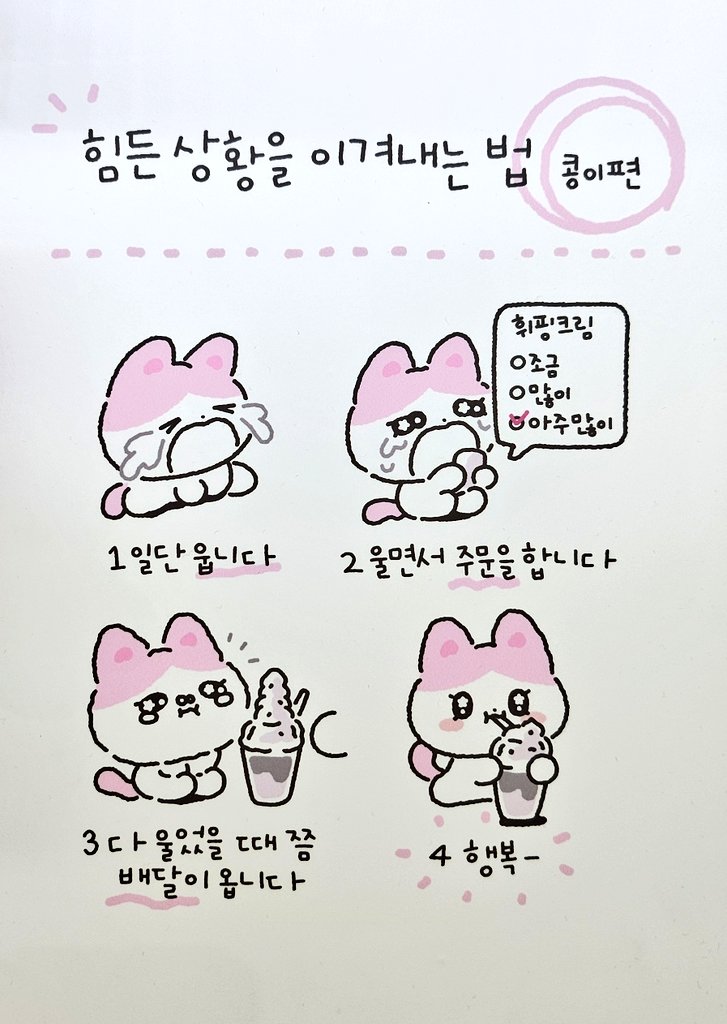 힘든 상황을 이겨내는 법 콩이편
휘핑크림
조금
많이
아주많이
1 일단 웁니다
2 울면서 주문을 합니다
3 다 울었을 때 쯤
배달이 옵니다
4 행복-